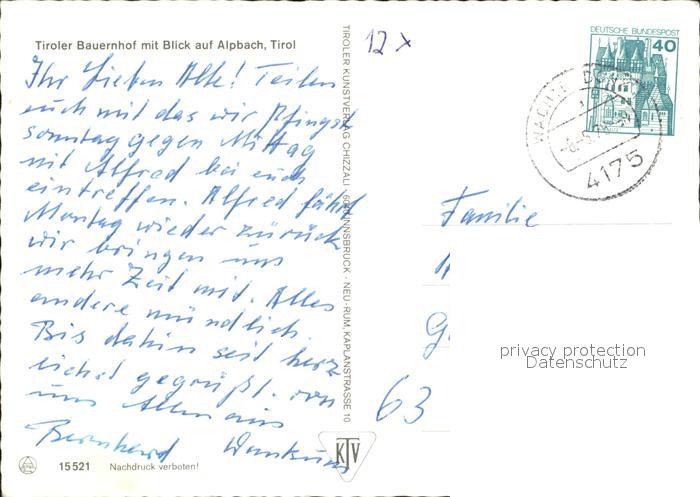 Tiroler Bauernhof mit Blick auf Alpbach, Tirol
Ihr Lieben Alle! Teilen
euch mit das wir Pfingst
sonntag gegen Mittag
mit Alfred bei euch
eintreffen. Alfred fährt
Montag wieder zurück
wir bringen uns
mehr Zeit mit. Alles
andere mündlich.
Bis dahin seit herz
lichst gegrüßt. von
uns Allen aus
Bernhard
15521 Nachdruck verboten!
TIROLER KUNSTVERLAG CHIZZALI · 6040 INNSBRUCK - NEU-RUM, KAPLANSTRASSE 10
KTV
12 x
DEUTSCHE BUNDESPOST
40
WACHTENDONK
4175
Familie
G
63
privacy protection
Datenschutz